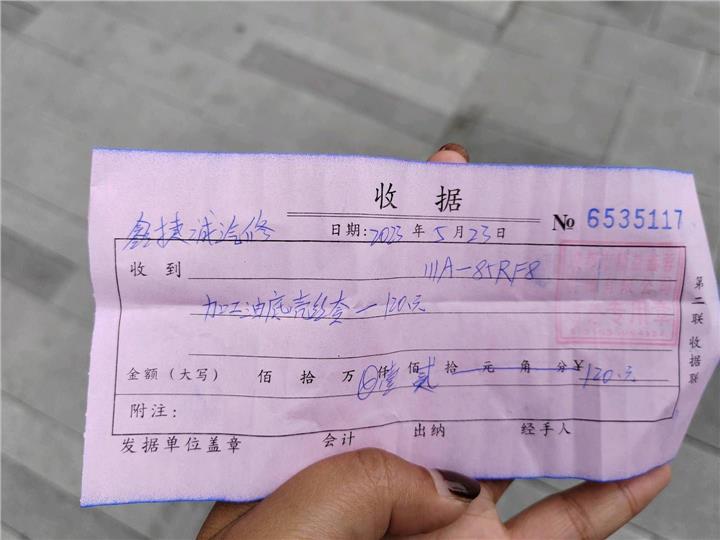 收据
鑫捷诚汽修
日期:2023年5月23日
№ 6535117
收到 川A-85RF8
加工油底壳丝套-120元
金额(大写) 佰拾万仟壹佰贰拾元角分¥120元
附注:
发据单位盖章 会计 出纳 经手人
第二联 收据联